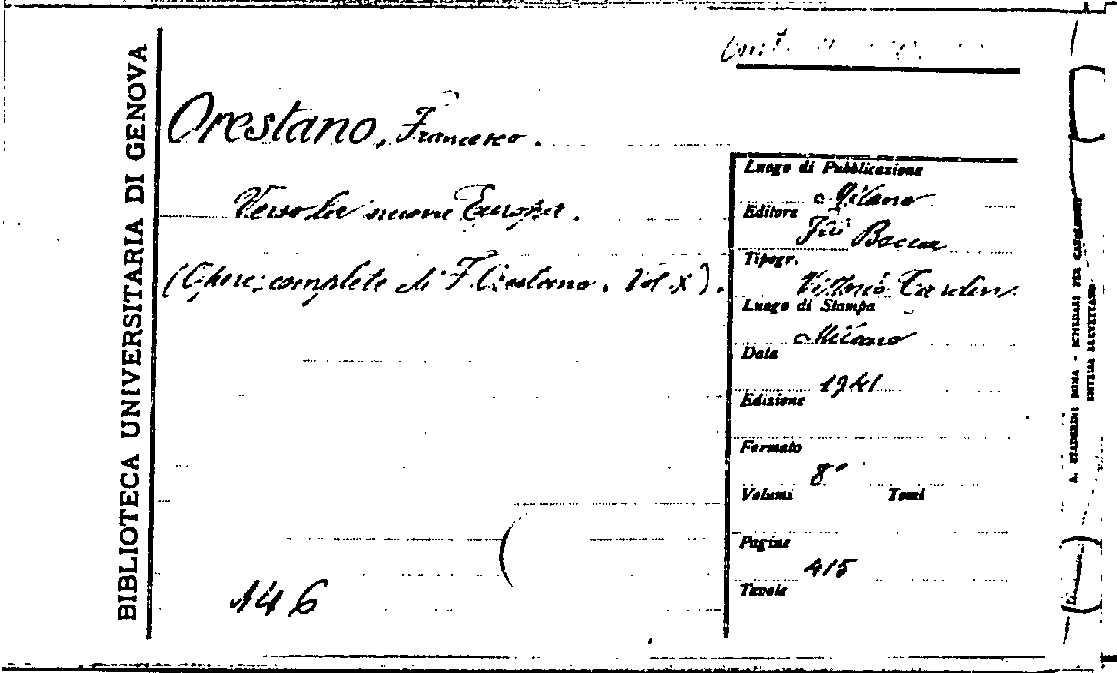 BIBLIOTECA UNIVERSITARIA DI GENOVA
Orestano, Francesco.
Verso la nuova Europa.
(Opere complete di F. Orestano. Vol X).
146
Luogo di Pubblicazione
Milano
Editore
Flli Bocca
Tipogr.
Vittorio Cardin
Luogo di Stampa
Milano
Data
1941
Edizione
Formato
8°
Volumi Tomi
Pagine
415
Tavole
A. STADERINI ROMA - SCHEDARI PER CATALOGHI